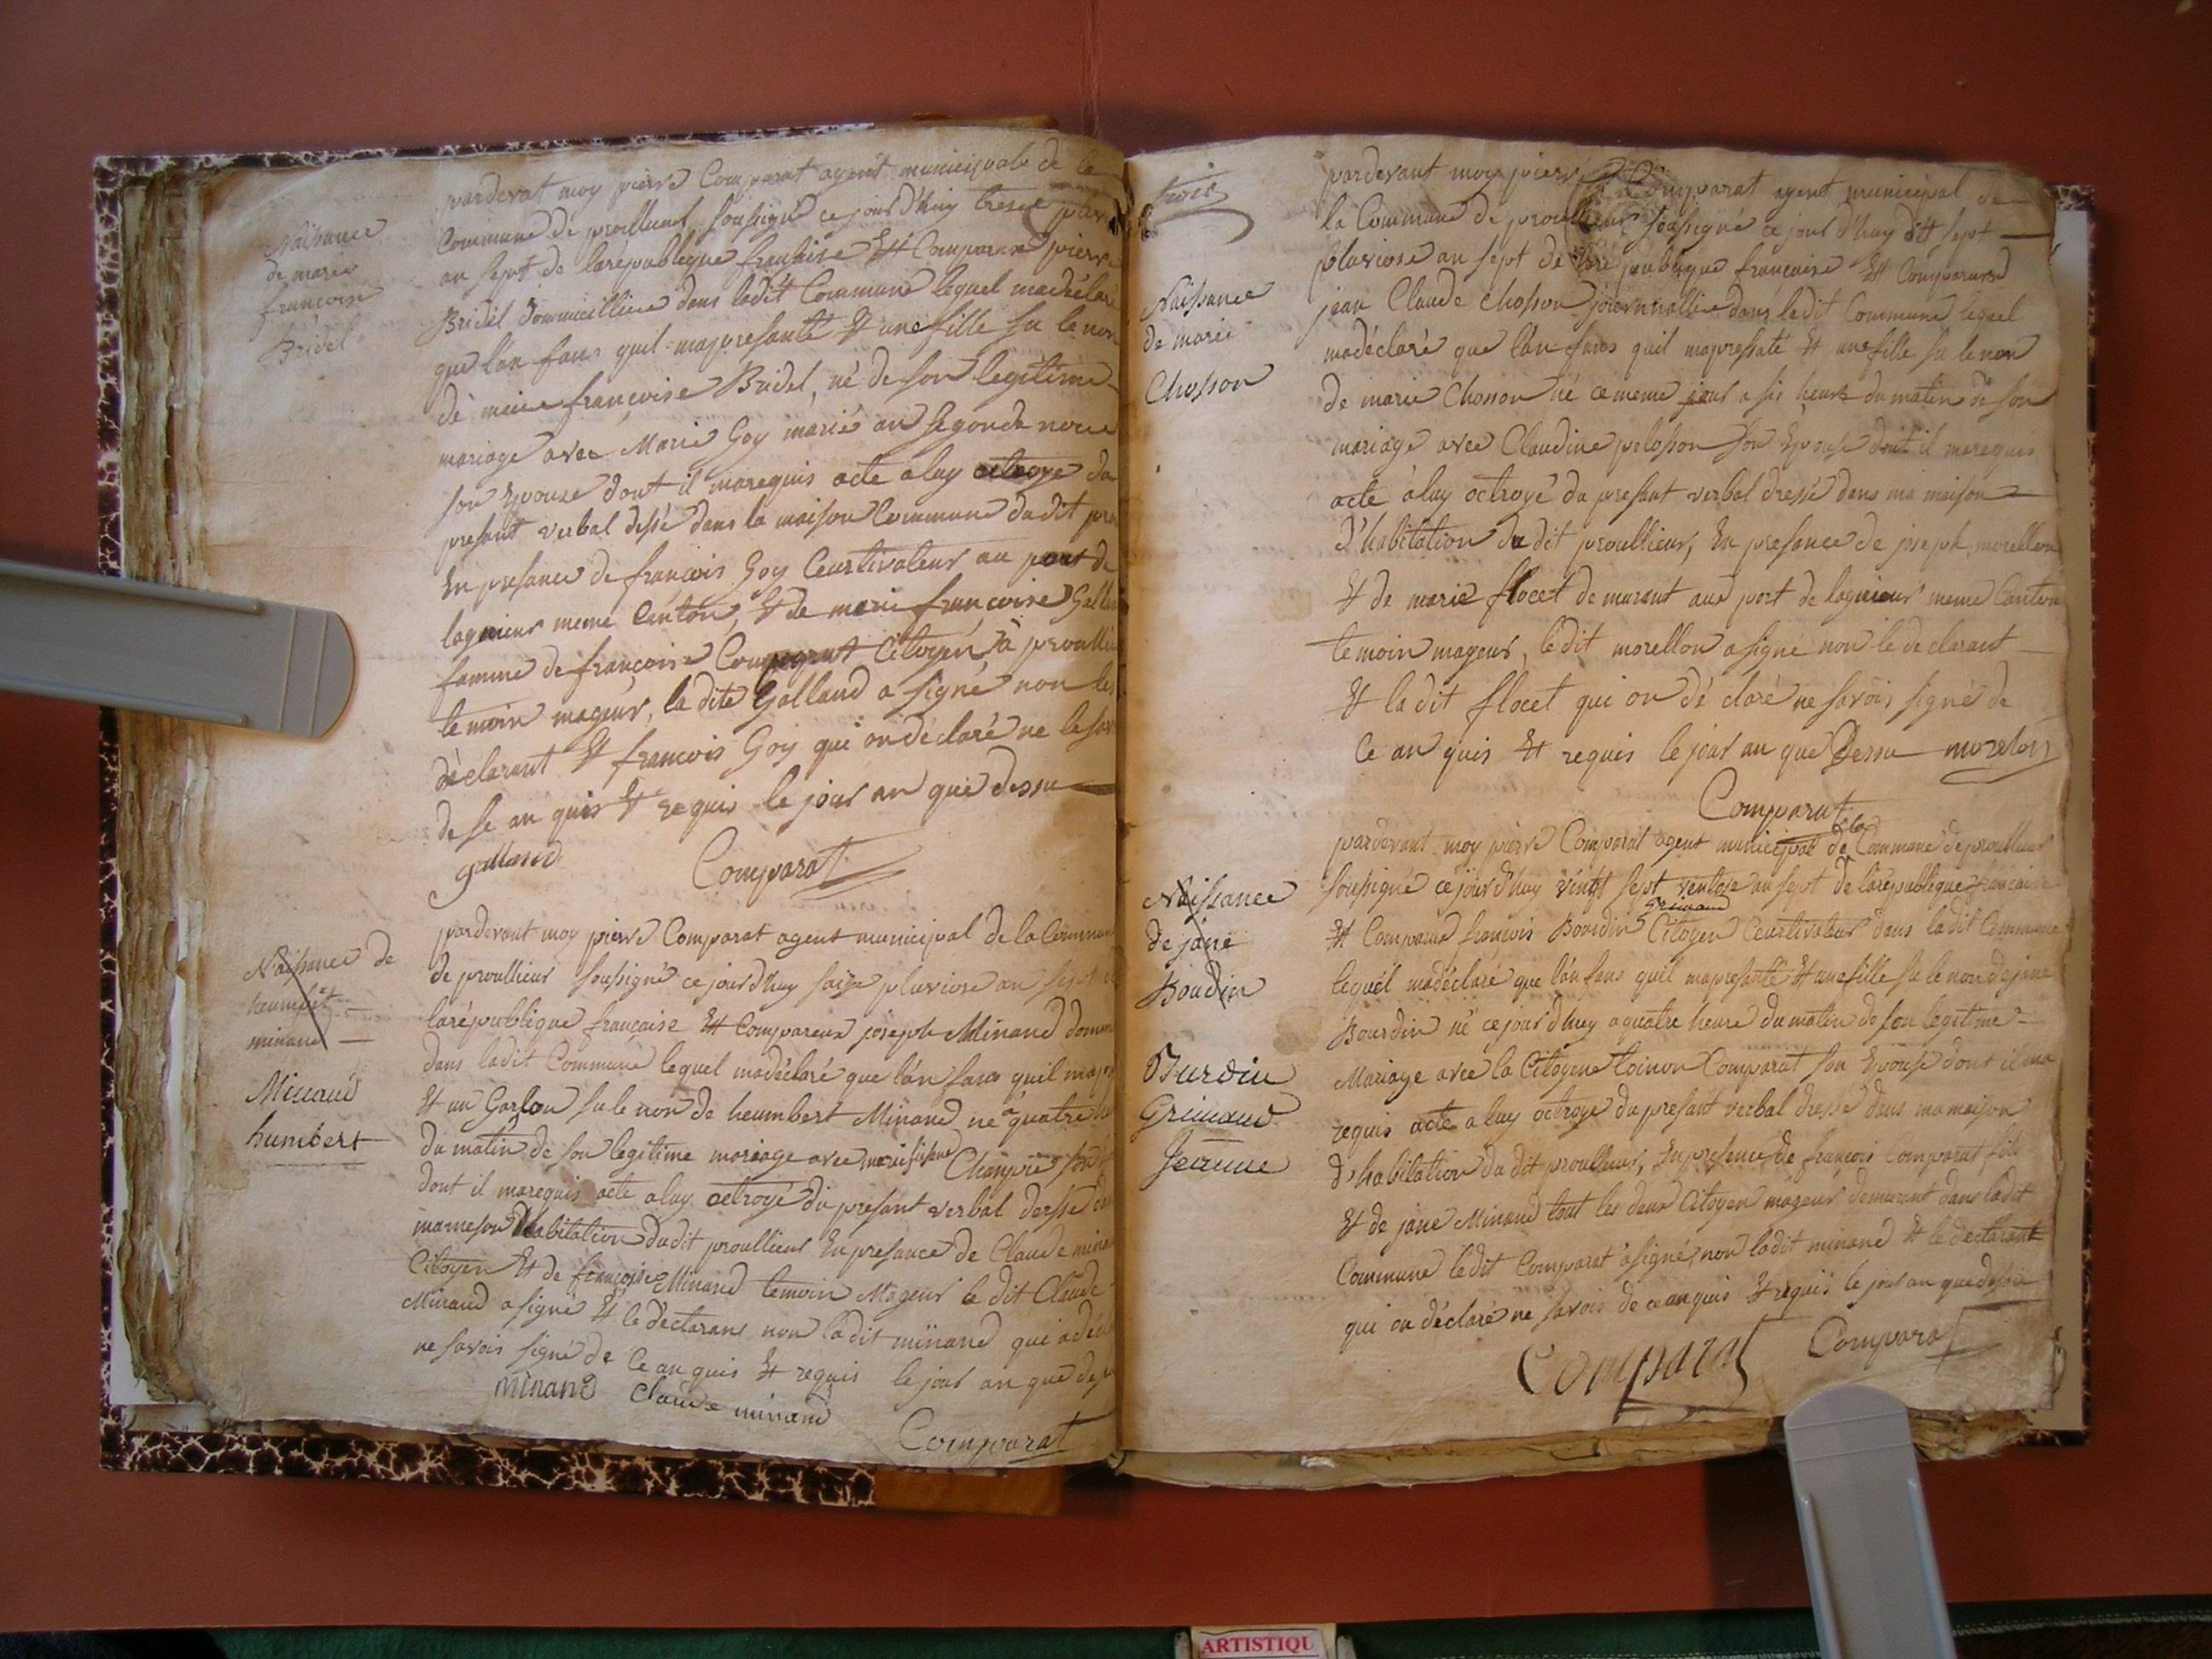 Naissance
de marie
françoise
Bridel
pardevat moy pierre Comparat agent municipale de la
Commune de proullieur soussigné ce jour d'huy tresze pluvi
an sept de larépublique française Et Comparu pierre
Bridel dommicilliée dans ladit Commune lequel madéclaré
que l'an fans quil mapresanté Et une fille su le non
de marie françoise Bridel, né de son legitime
mariage avec Marie Goy marié an segonde noce
son Epouse dont il marequis acte a luy octroyé du
presant verbal dessé dans la maison Commune dudit prou
En presance de françois Goy Ceurtivateur au port de
lagnieur meme Canton, Et de marie françoise Galland
famme de françoise Comparat Citoyen, à proullieu
temoin mageur, la dite Galland a signé non le
déclarant Et françois Goy qui on déclaré ne le sav
de se an quis Et requis le jour an que dessu
galland Comparat
Naissance de
heumbet
minand
Minand
humbert
pardevant moy pierre Comparat agent municipal de la Commun
de proullieur soussigné ce jourdhuy saize pluviose an sept d
larépublique française Et Compareu joseph Minand domm
dans ladit Commune lequel madéclaré que l'an fans quil mapr
Et un Garson su le non de heumbert Minand né à quatre heu
du matin de son legitime mariage avec marie Champie son
dont il marequis acte a luy octroyé du presant verbal dersse dan
mameson Dhabitation dudit proullieur En presance de Claude mina
Citoyen Et de françoise Minand temoin Mageur le dit Claude
Minand a signé Et le déclarans non ladit minand qui a décl
ne savoir signé de Ce an quis Et requis le jour an que dessu
minand Claude minand
Comparat
trois
Naissance
de marie
Chosson
pardevant moy pierre Comparat agent municipal de
la Commune de proullieur soussigné ce jour d'huy dit sept
pluviose an sept de larépublique française Et Comparu
jean Claude chosson journnallie dans ladit Commune lequel
madéclaré que l'an fans quil mapressaté Et une fille su le non
de marie Chosson né ce meme jour a sis heure du matin de son
mariage avec Claudine pelosson son Epouse dont il marequis
acte à luy octroyé du presant verbal dressé dans ma maison
D'habitation du dit proullieur, En presance de joseph morellon
Et de marie flocet demurant aux port de lagnieur meme Canton
temoin mageur, ledit morellon a signé non le declarant
Et la dit flocet qui on dé claré ne savoir signé de
Ce an quis Et requis le jour an que Dessu morelon
Comparat
Naissance
de jane
Boudin
Burdin
Grimaud
Jeanne
pardevant moy pierre Comparat agent municipal de la Commune de proullieur
soussigné ce jour d'huy vingt sept ventose an sept de larépublique française
Et Comparu françois Bourdin Grimaud Citoyen Ceurtivateur dans ladit Commune
lequel madéclaré que l'an fans quil mapresanté Et une fille su le non de jane
Bourdin né ce jour d'huy a quatre heure du matin de son legitime
Mariage avec la Citoyene toinon Comparat son Epouse dont il ma
requis acte a luy octroyé du presant verbal dressé dans ma maison
d'habitation du dit proullieur, En presence de françois Comparat fils
Et de jane Minand tout les deux Citoyen mageur demurant dans ladit
Commune ledit Comparat a signé, non ladit minand Et le declarant
qui on déclaré ne savoir de ce an quis Et requis le jour an que dessu
Comparat Comparat
ARTISTIQU